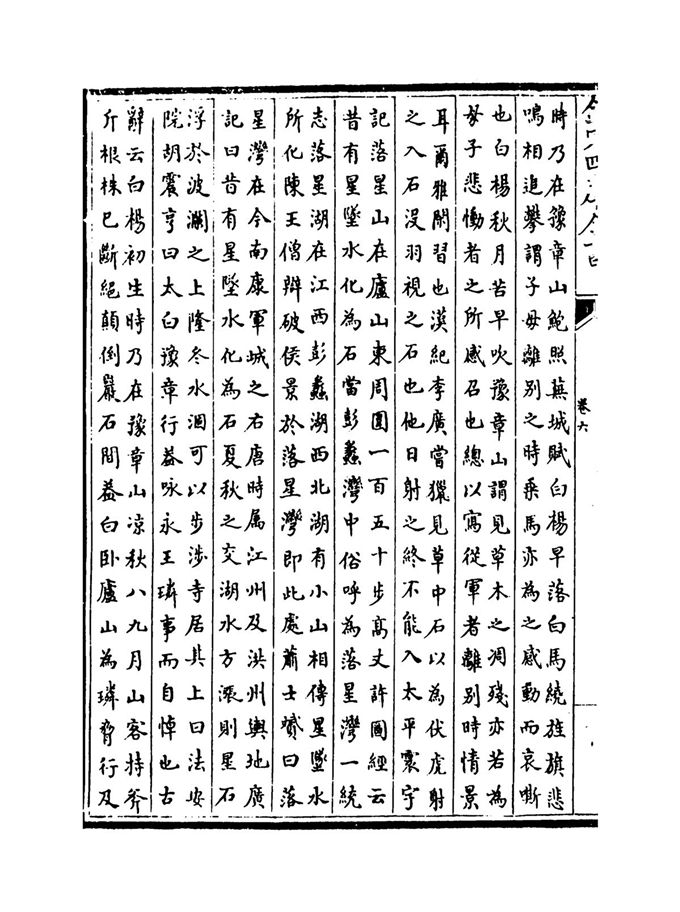 時乃在豫章山鮑照蕪城賦白楊早落白馬繞旌旗悲
鳴相追攀謂子母離別之時乘馬亦為之感動而哀嘶
也白楊秋月苦早吹豫章山謂見草木之凋殘亦若為
母子悲慟者之所感召也總以寫從軍者離別時情景
耳爾雅閑習也漢紀李廣嘗獵見草中石以為伏虎射
之入石沒羽視之石也他日射之終不能入太平寰宇
記落星山在廬山東周圍一百五十步高丈許圖經云
昔有星墜水化為石當彭蠡灣中俗呼為落星灣一統
志落星湖在江西彭蠡湖西北湖有小山相傳星墜水
所化陳王僧辯破侯景於落星灣即此處蕭士贇曰落
星灣在今南康軍城之右唐時属江州及洪州輿地廣
記曰昔有星墜水化為石夏秋之交湖水方漲則星石
浮於波瀾之上隆冬水涸可以步涉寺居其上曰法安
院胡震亨曰太白豫章行葢咏永王璘事而自悼也古
辭云白楊初生時乃在豫章山凉秋八九月山客持斧
斤根株已斷絕顛倒巖石間葢白卧廬山為璘脅行及
卷六